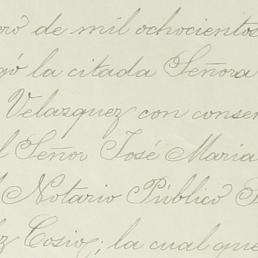 ero de mil ochocientos
gó la citada Señora
Velazquez con conser
l Señor José María
l Notario Público
z Cosio; la cual que